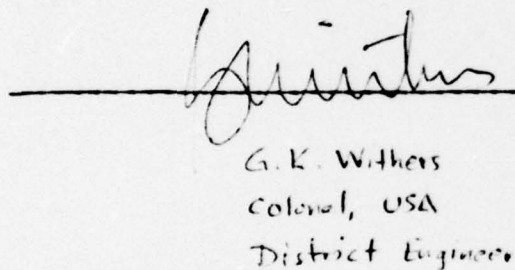 G. K. Withers
Colonel, USA
District Engineer